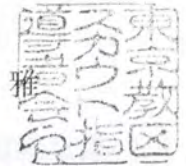 東京教区
スカウト指
導者会印
雅